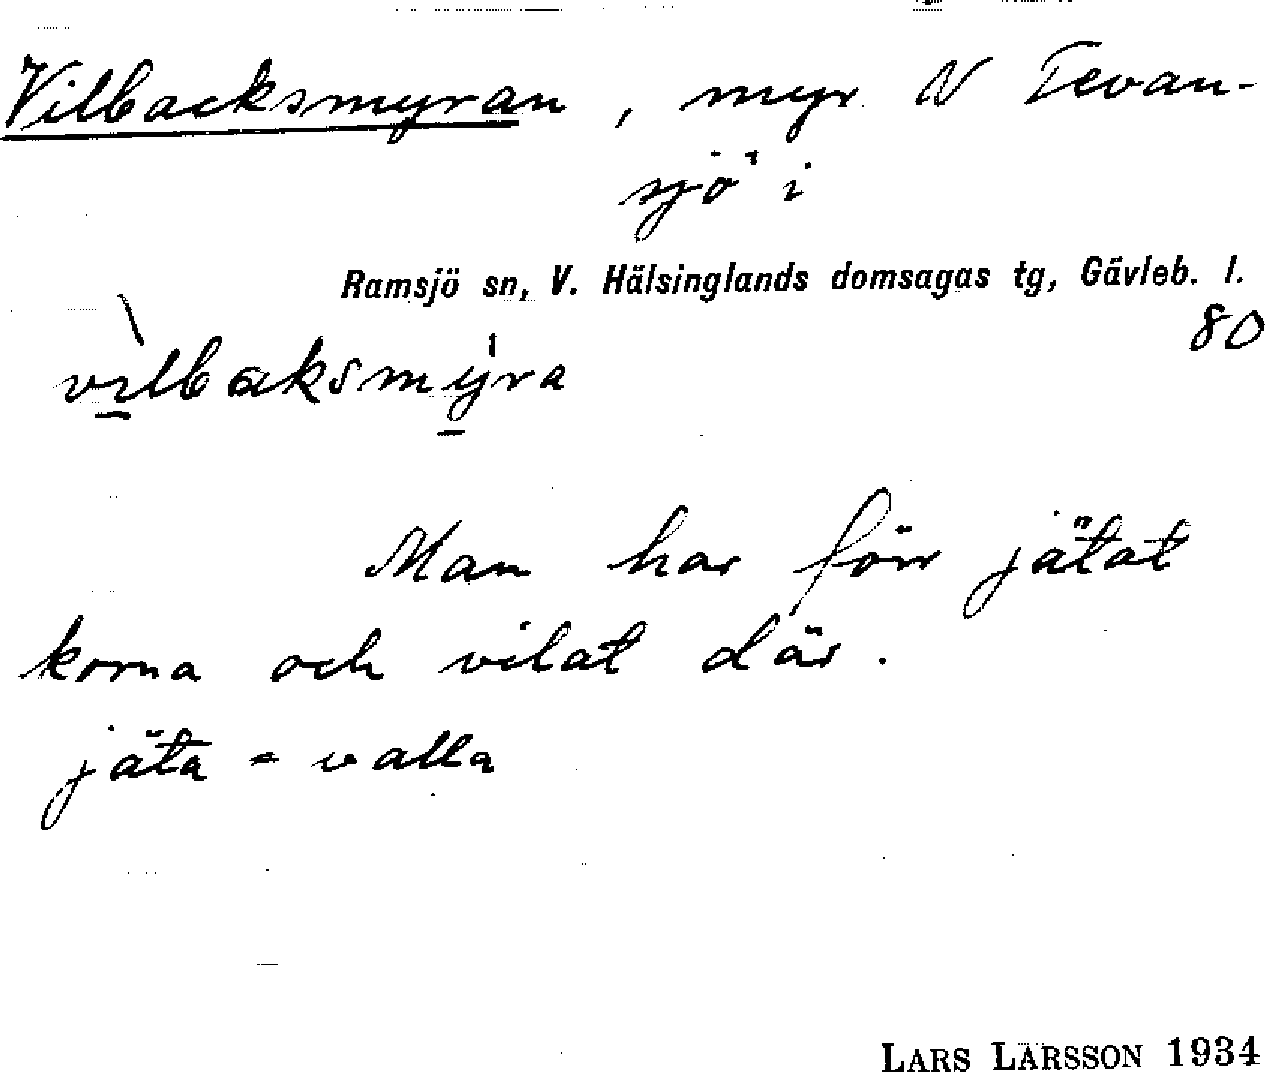 Vilbacksmyran, myr N Tevan-
sjö i
Ramsjö sn, V. Hälsinglands domsagas tg, Gävleb. l.
80
vilbaksmyra
Man har förr jätat
korna och vilat där.
jäta = valla
LARS LARSSON 1934